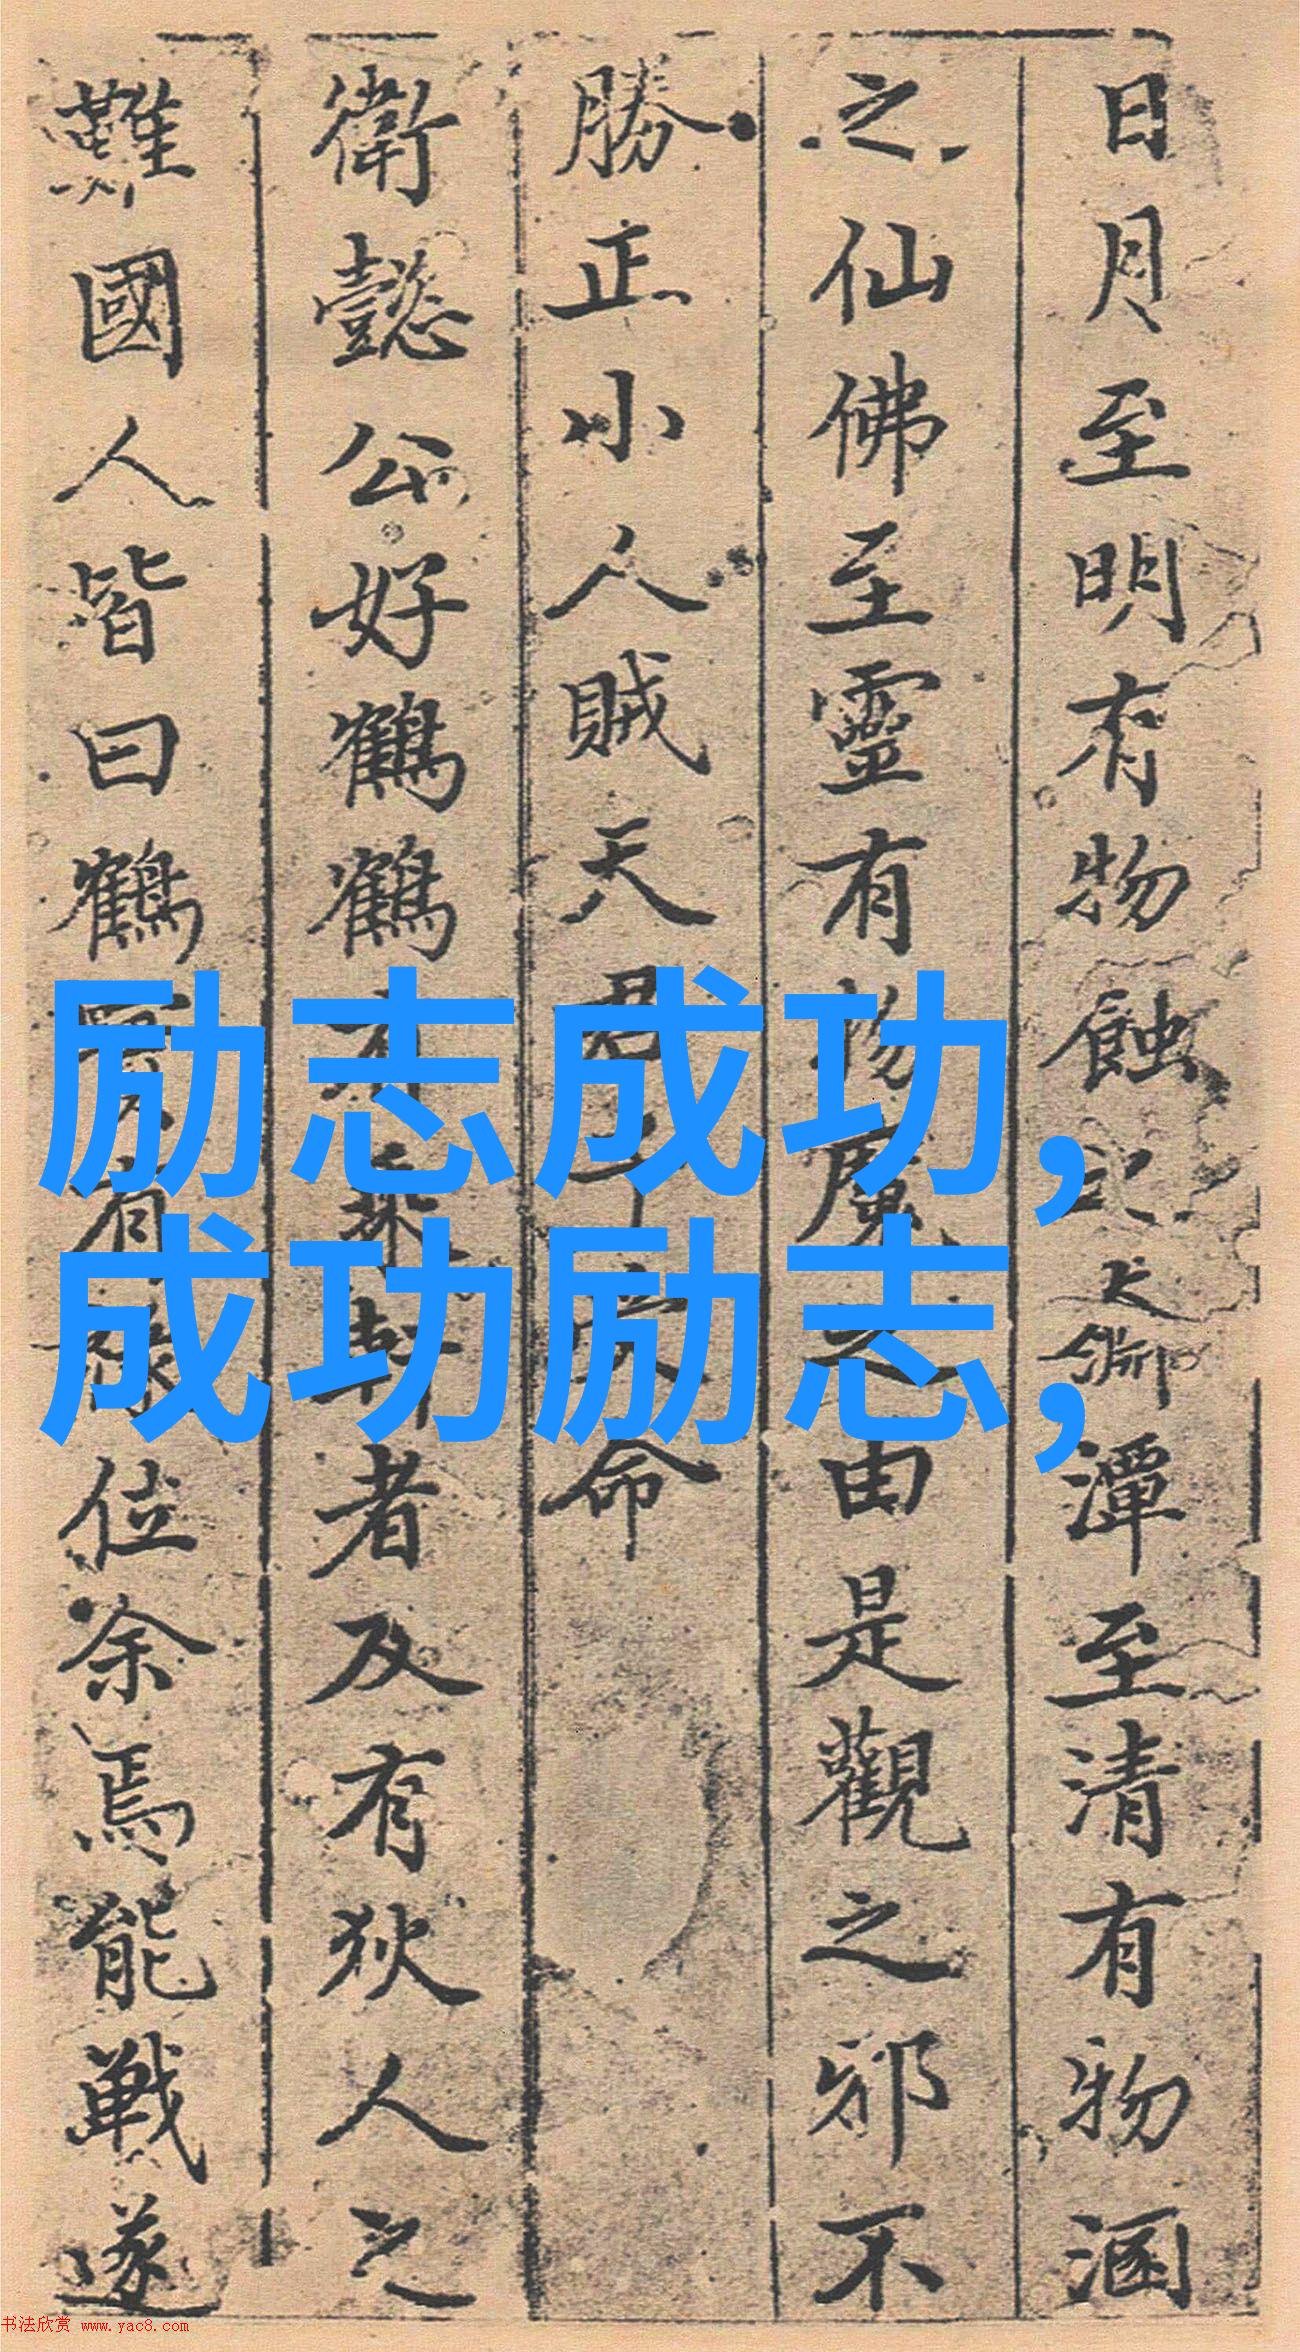 日月至明有物蝕之大淵潭至清有物溷
之仙佛至靈有物魔之由是觀之邪不
勝正小人賊天君
命
衛懿公好鶴鶴有乘軒者及有狄人之
難國人皆曰鶴實有祿位余焉能戰遂
励志成功,
成功励志,
书法欣赏 www.yac8.com